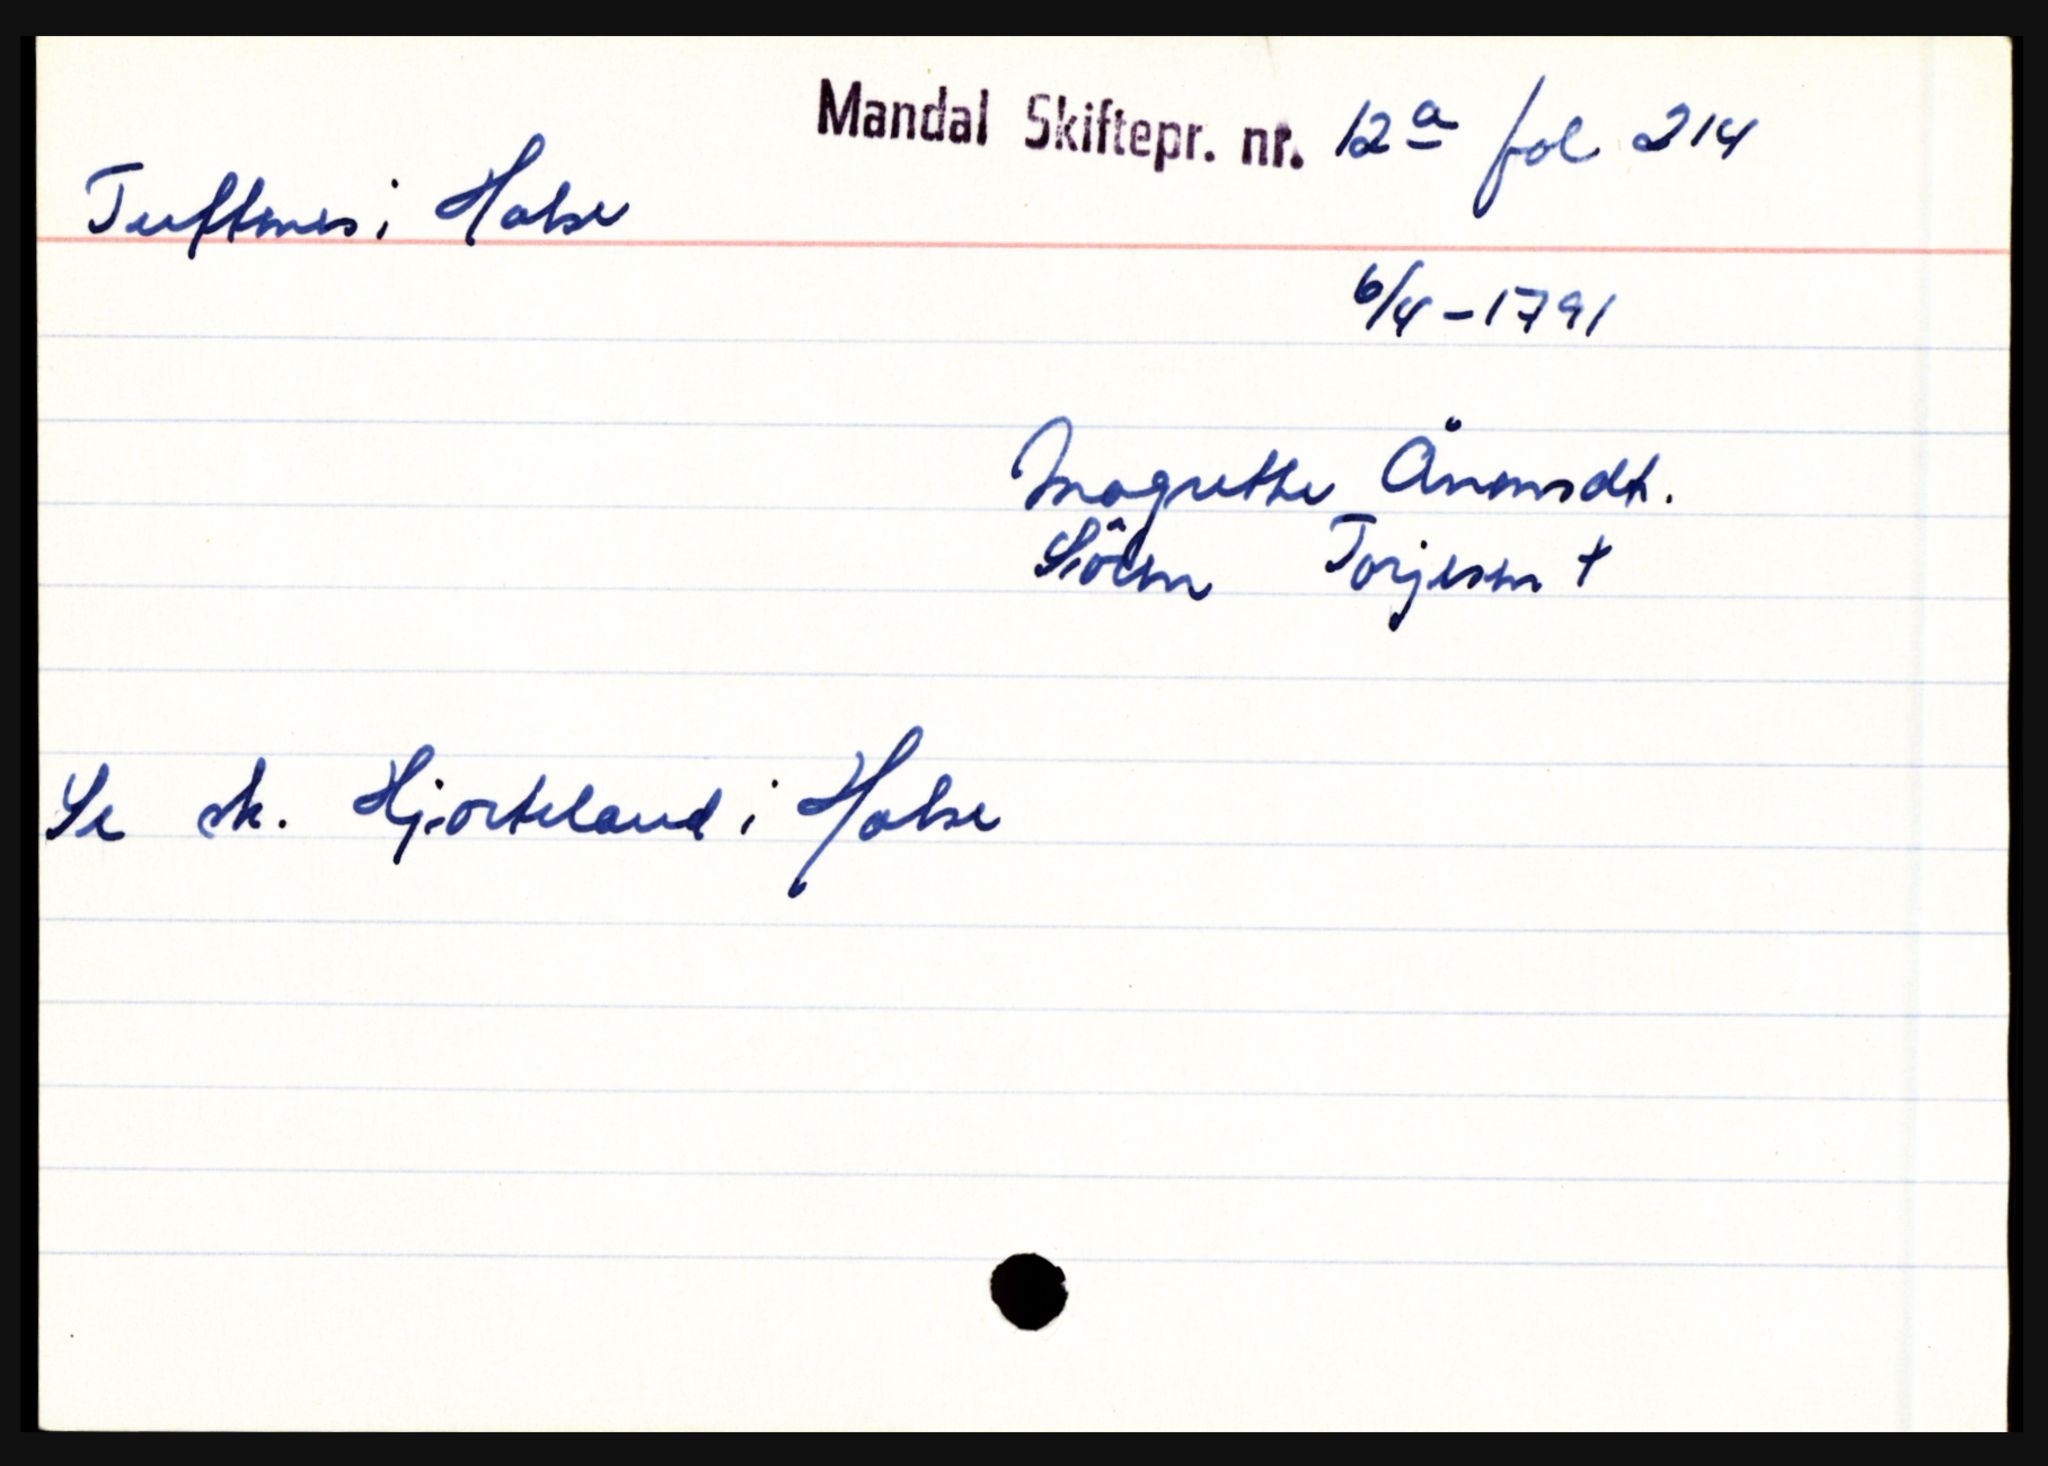 Mandal Skiftepr. nr. 12a fol 214
Tuftenes i Halse
6/4 - 1791
Magrethe Ånensdt.
Sören Torjesen †
Se sk. Hjorteland i Halse